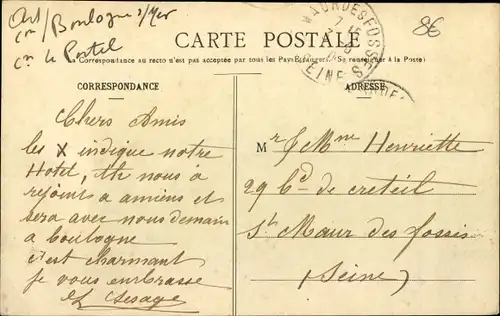 Art/Boulogne s/Mer
Cn Le Portel
8€
CARTE POSTALE
La Correspondance au recto n'est pas acceptée par tous les Pays Etrangers (Se renseigner à la Poste)
MAUR DES FOSSÉS
SEINE
CORRESPONDANCE
ADRESSE
Chers Amis
les X indique notre
Hotel, th nous a
rejoint a amiens et
sera avec nous demain
a boulogne
c'est charmant
je vous embrasse
Lesage
Mr & Mme Henriette
29 Bd de creteil
St Maur des fossis
(Seine)